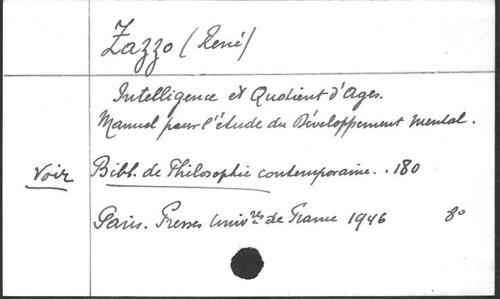 Zazzo (René)
Intelligence et Quotient d'Ages.
Manuel pour l'étude du Développement mental.
Voir Bibl. de Philosophie contemporaine. . 180
Paris. Presses Univ.res de France 1946 8o